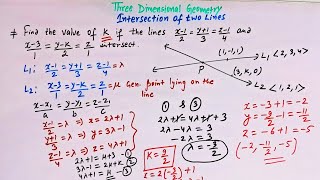 Three Dimensional Geometry
Intersection of two Lines
# Find the value of K if the lines x-1/2 = y+1/3 = z-1/4 and
x-3/1 = y-k/2 = z/1 intersect.
L1: x-1/2 = y+1/3 = z-1/4 = λ
L2: x-3/1 = y-k/2 = z/1 = μ Gen. point lying on the line
x-x₁/a = y-y₁/b = z-z₁/c
x-1/2 = λ ⇒ x = 2λ+1
y+1/3 = λ ⇒ y = 3λ-1
z-1/4 = λ ⇒ z = 4λ+1
2λ+1 = μ+3 -①
3λ-1 = 2μ+K -②
4λ+1 = μ -③
① & ③
2λ+1 = 4λ+1+3
2λ-4λ = 3
-2λ = 3
λ = -3/2
K = 9/2
x = 2(-3/2)+1
(1,-1,1)
L1 <2,3,4>
P
(3,K,0)
L2 <1,2,1>
x = -3+1 = -2
y = -9/2 -1 = -11/2
z = -6+1 = -5
(-2, -11/2, -5)